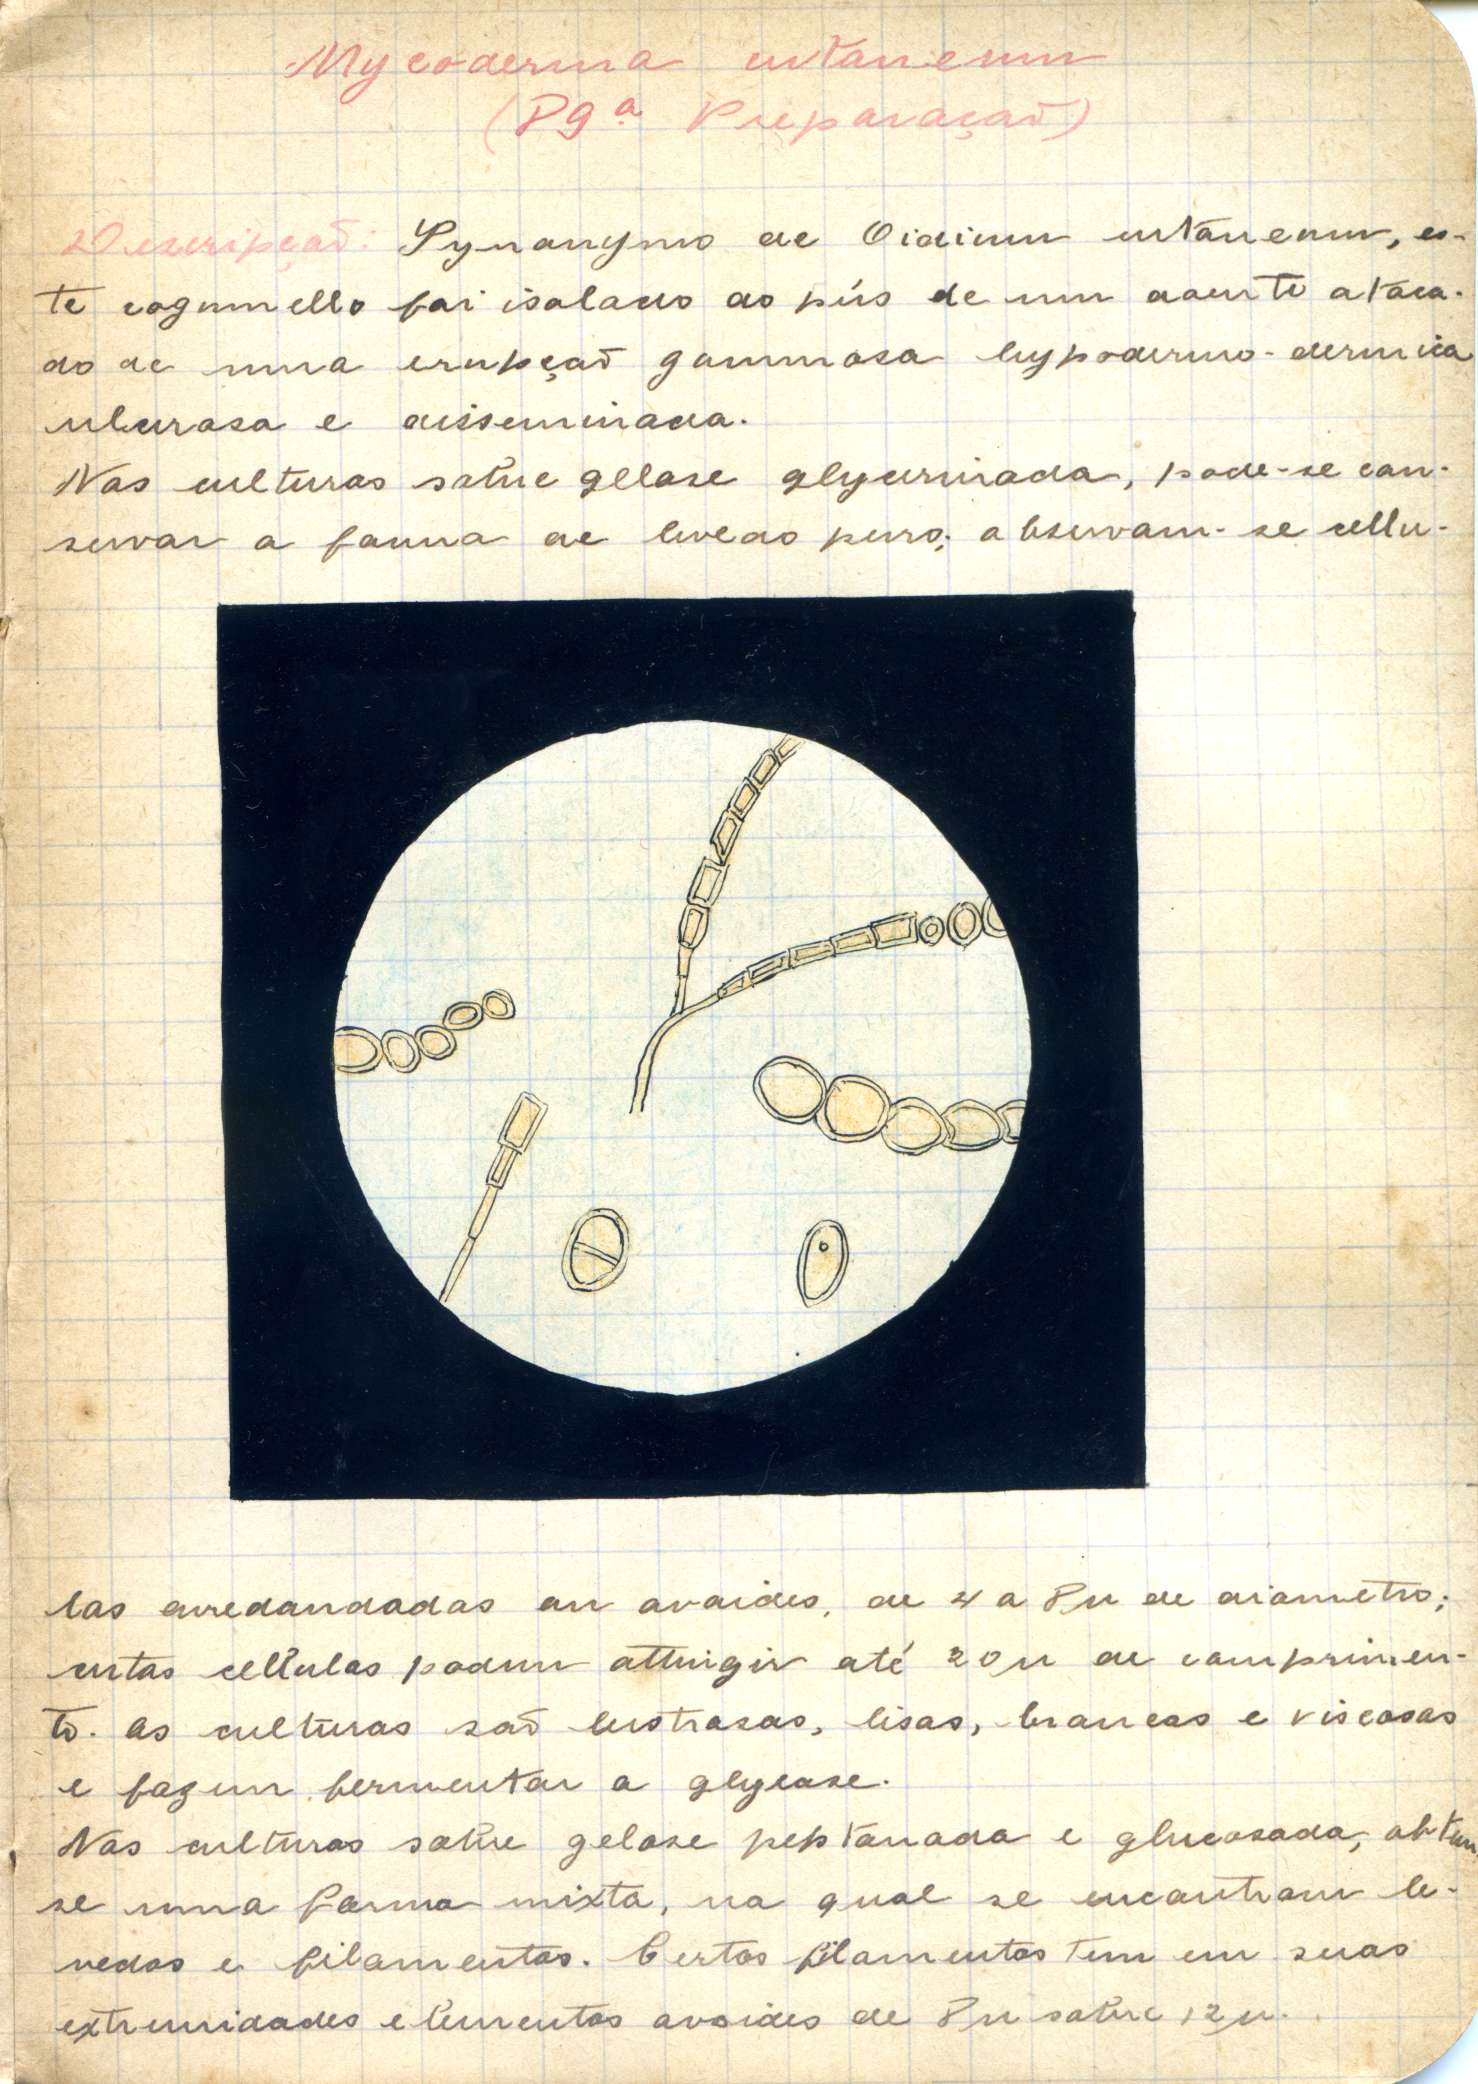 Mycoderma cutaneum
(89ª Preparação)
Descripção: Synonymo de Oidium cutaneum, es-
te cogumello foi isolado do pús de um doente ataca-
do de uma erupção gommosa hypodermo-dermica
ulcerosa e disseminada.
Nas culturas sobre gelose glycerinada, pode-se con-
servar a forma de levedo puro; observam-se cellu-
las arredondadas ou ovoides, de 4 a 8µ de diametro;
estas cellulas podem attingir até 20µ de comprimen-
to. As culturas são lustrosas, lisas, brancas e viscosas
e fazem fermentar a glycose.
Nas culturas sobre gelose peptonada e glucosada, obtem
se uma forma mixta, na qual se encontram le-
vedos e filamentos. Certos filamentos tem em suas
extremidades elementos ovoides de 8µ sobre 12µ.